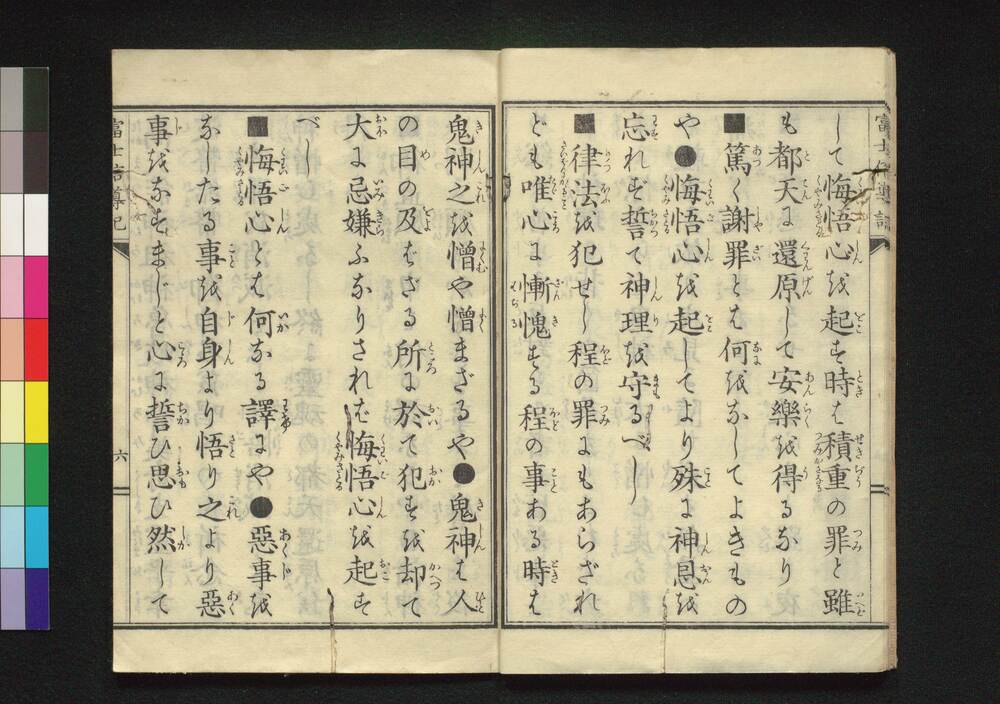 して悔悟心越起春時ハ積重の罪と雖
も都天に還原して安樂越得るなり
■篤く謝罪とハ何越なしてよきもの
や●悔悟心越起してより殊に神恩越
忘れ春誓て神理越守るべし
■律法越犯せし程の罪にもあらざれ
ども唯心に慚愧春る程の事ある時ハ
鬼神之越憎や憎まざるや●鬼神ハ人
の目の及ばざる所に於て犯春越却て
大に忌嫌ふなりされば悔悟心越起春
べし
■悔悟心とハ何なる譯にや●惡事越
なしたる事越自身より悟り之より惡
事越な春まじと心に誓ひ思ひ然して
富士信導記
六